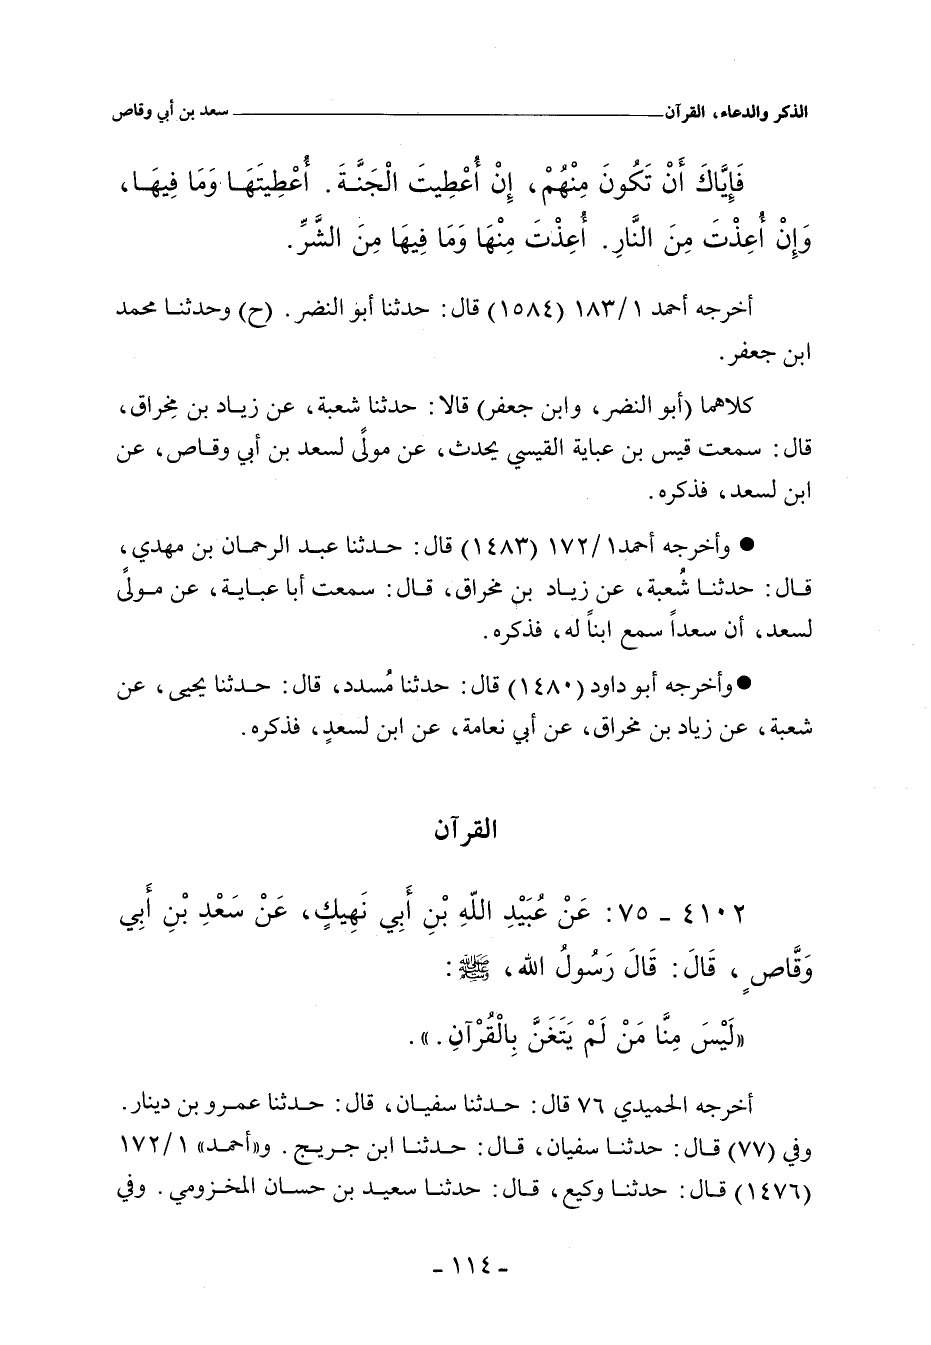 الذكر والدعاء، القرآن ـــــــــــــــــــــ سعد بن أبي وقاص
فَإِيَّاكَ أَنْ تَكُونَ مِنْهُمْ، إِنْ أُعْطِيتَ الْجَنَّةَ. أُعْطِيتَهَا وَمَا فِيهَا،
وَإِنْ أُعِذْتَ مِنَ النَّارِ. أُعِذْتَ مِنْهَا وَمَا فِيهَا مِنَ الشَّرِّ.
أخرجه أحمد ١/١٨٣ (١٥٨٤) قال: حدثنا أبو النضر. (ح) وحدثنا محمد
ابن جعفر.
كلاهما (أبو النضر، وابن جعفر) قالا: حدثنا شعبة، عن زياد بن مخراق،
قال: سمعت قيس بن عباية القيسي يحدث، عن مولًى لسعد بن أبي وقاص، عن
ابن لسعد، فذكره.
● وأخرجه أحمد١/١٧٢ (١٤٨٣) قال: حدثنا عبد الرحمان بن مهدي،
قال: حدثنا شُعبة، عن زياد بن مخراق، قال: سمعت أبا عباية، عن مولًى
لسعد، أن سعداً سمع ابناً له، فذكره.
●وأخرجه أبو داود (١٤٨٠) قال: حدثنا مُسدد، قال: حدثنا يحيى، عن
شعبة، عن زياد بن مخراق، عن أبي نعامة، عن ابن لسعدٍ، فذكره.
القرآن
٤١٠٢ ـ ٧٥: عَنْ عُبَيْدِ اللّهِ بْنِ أَبِي نَهِيكٍ، عَنْ سَعْدِ بْنِ أَبِي
وَقَّاصٍ، قَالَ: قَالَ رَسُولُ الله، ﷺ:
«لَيْسَ مِنَّا مَنْ لَمْ يَتَغَنَّ بِالْقُرْآنِ.».
أخرجه الحميدي ٧٦ قال: حدثنا سفيان، قال: حدثنا عمرو بن دينار.
وفي (٧٧) قال: حدثنا سفيان، قال: حدثنا ابن جريج. و«أحمد» ١/١٧٢
(١٤٧٦) قال: حدثنا وكيع، قال: حدثنا سعيد بن حسان المخزومي. وفي
ـ ١١٤ ـ